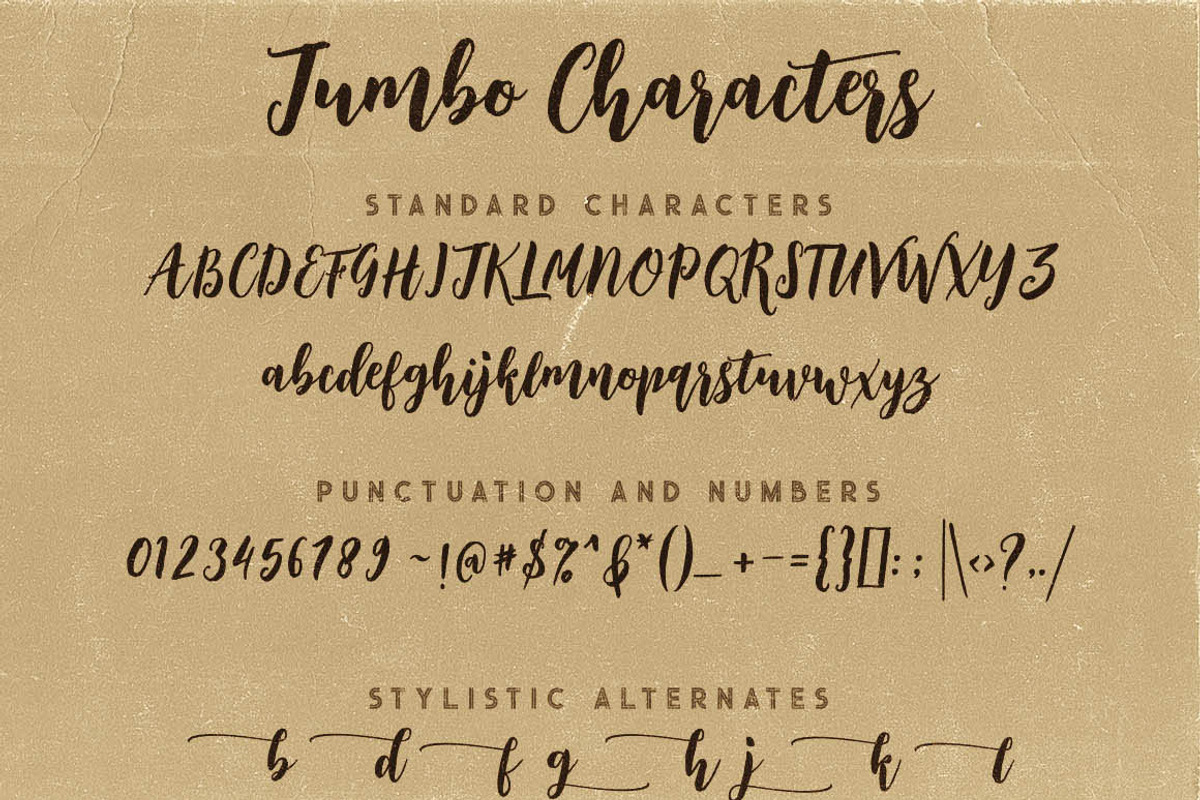 Jumbo Characters
STANDARD CHARACTERS
ABCDEFGHIJKLMNOPQRSTUVWXYZ
abcdefghijklmnopqrstuvwxyz
PUNCTUATION AND NUMBERS
0123456789 ~!@#$%^&*()_ +-={}[]:; |\<>?,./
STYLISTIC ALTERNATES
b d f g h j k l